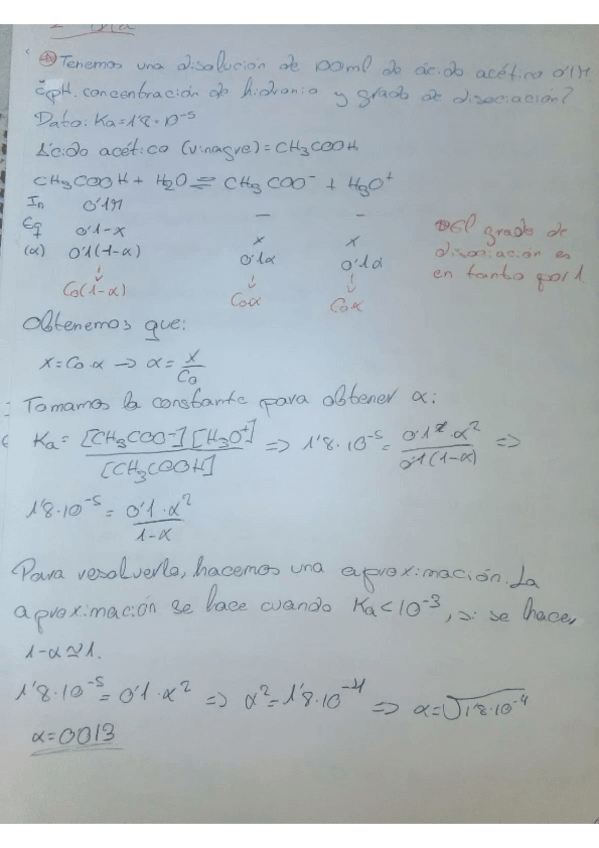 Tenemos una disolución de 100ml de ácido acético 0'1M
¿pH, concentración de hidronio y grado de disociación?
Dato: Ka=1'8·10⁻⁵
Ácido acético (vinagre)=CH₃COOH
CH₃COOH + H₂O ⇌ CH₃COO⁻ + H₃O⁺
In 0'1M — —
Eq 0'1-x x x
(α) 0'1(1-α) 0'1α 0'1α
↓ ↓ ↓
Co(1-α) Coα Coα
El grado de
disociación es
en tanto por 1.
Obtenemos que:
x=Co·α → α=x/Co
Tomamos la constante para obtener α:
Ka=[CH₃COO⁻][H₃O⁺]/[CH₃COOH] => 1'8·10⁻⁵=0'1²·α²/0'1(1-α) =>
1'8·10⁻⁵=0'1·α²/1-α
Para resolverla, hacemos una aproximación. La
aproximación se hace cuando Ka<10⁻³, si se hace,
1-α≃1.
1'8·10⁻⁵=0'1·α² => α²=1'8·10⁻⁴ => α=√1'8·10⁻⁴
α=0013